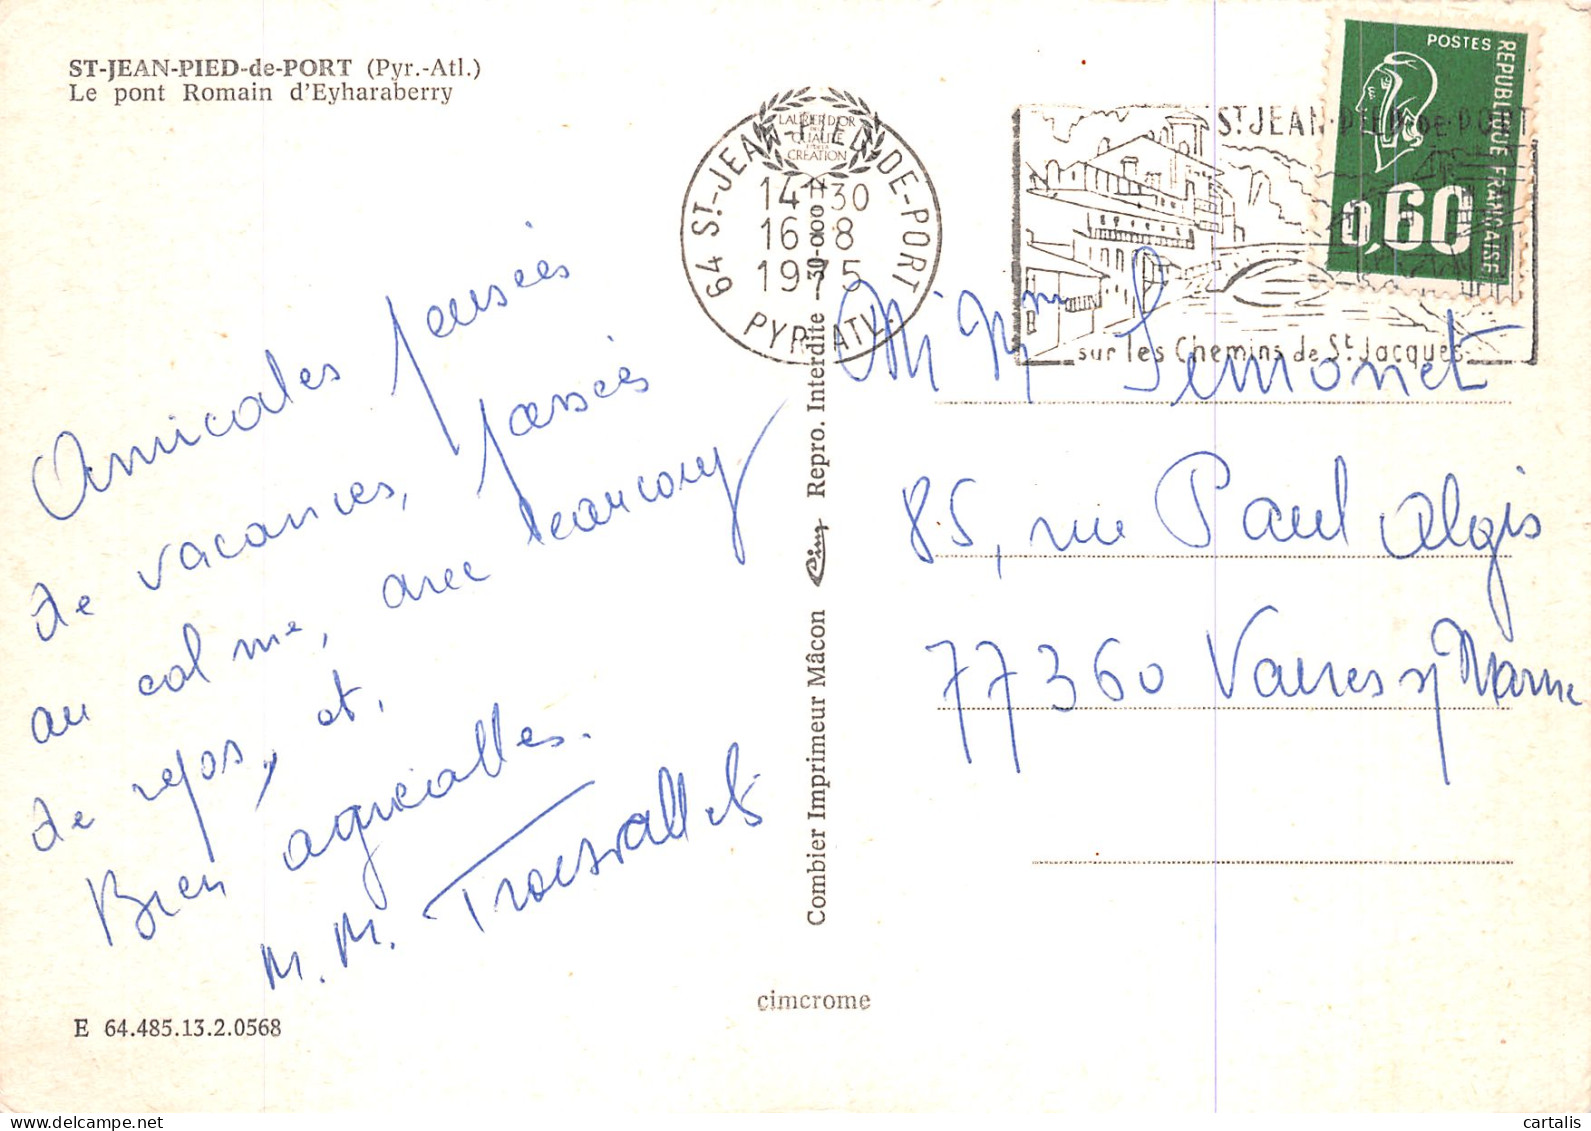 ST-JEAN-PIED-de-PORT (Pyr.-Atl.)
Le pont Romain d'Eyharaberry
Amicales pensées
de vacances, passées
au calme, avec beaucoup
de repos, et.
Bien agréables.
M. M.
E 64.485.13.2.0568
LAURIER D'OR
QUALITÉ
CRÉATION
64 ST-JEAN-PIED-DE-PORT
14H30
16-8
1975
PYR. ATL.
Combier Imprimeur Mâcon Cim Repro. Interdite
cimcrome
ST JEAN-PIED-DE-PORT
sur les Chemins de St Jacques
POSTES
REPUBLIQUE FRANÇAISE
0,60
M Mme Semonet
85, rue Paul Algis
77360 Vaires s/ Marne
cartalis